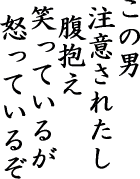 この男
注意されたし
腹抱え
笑っているが
怒っているぞ